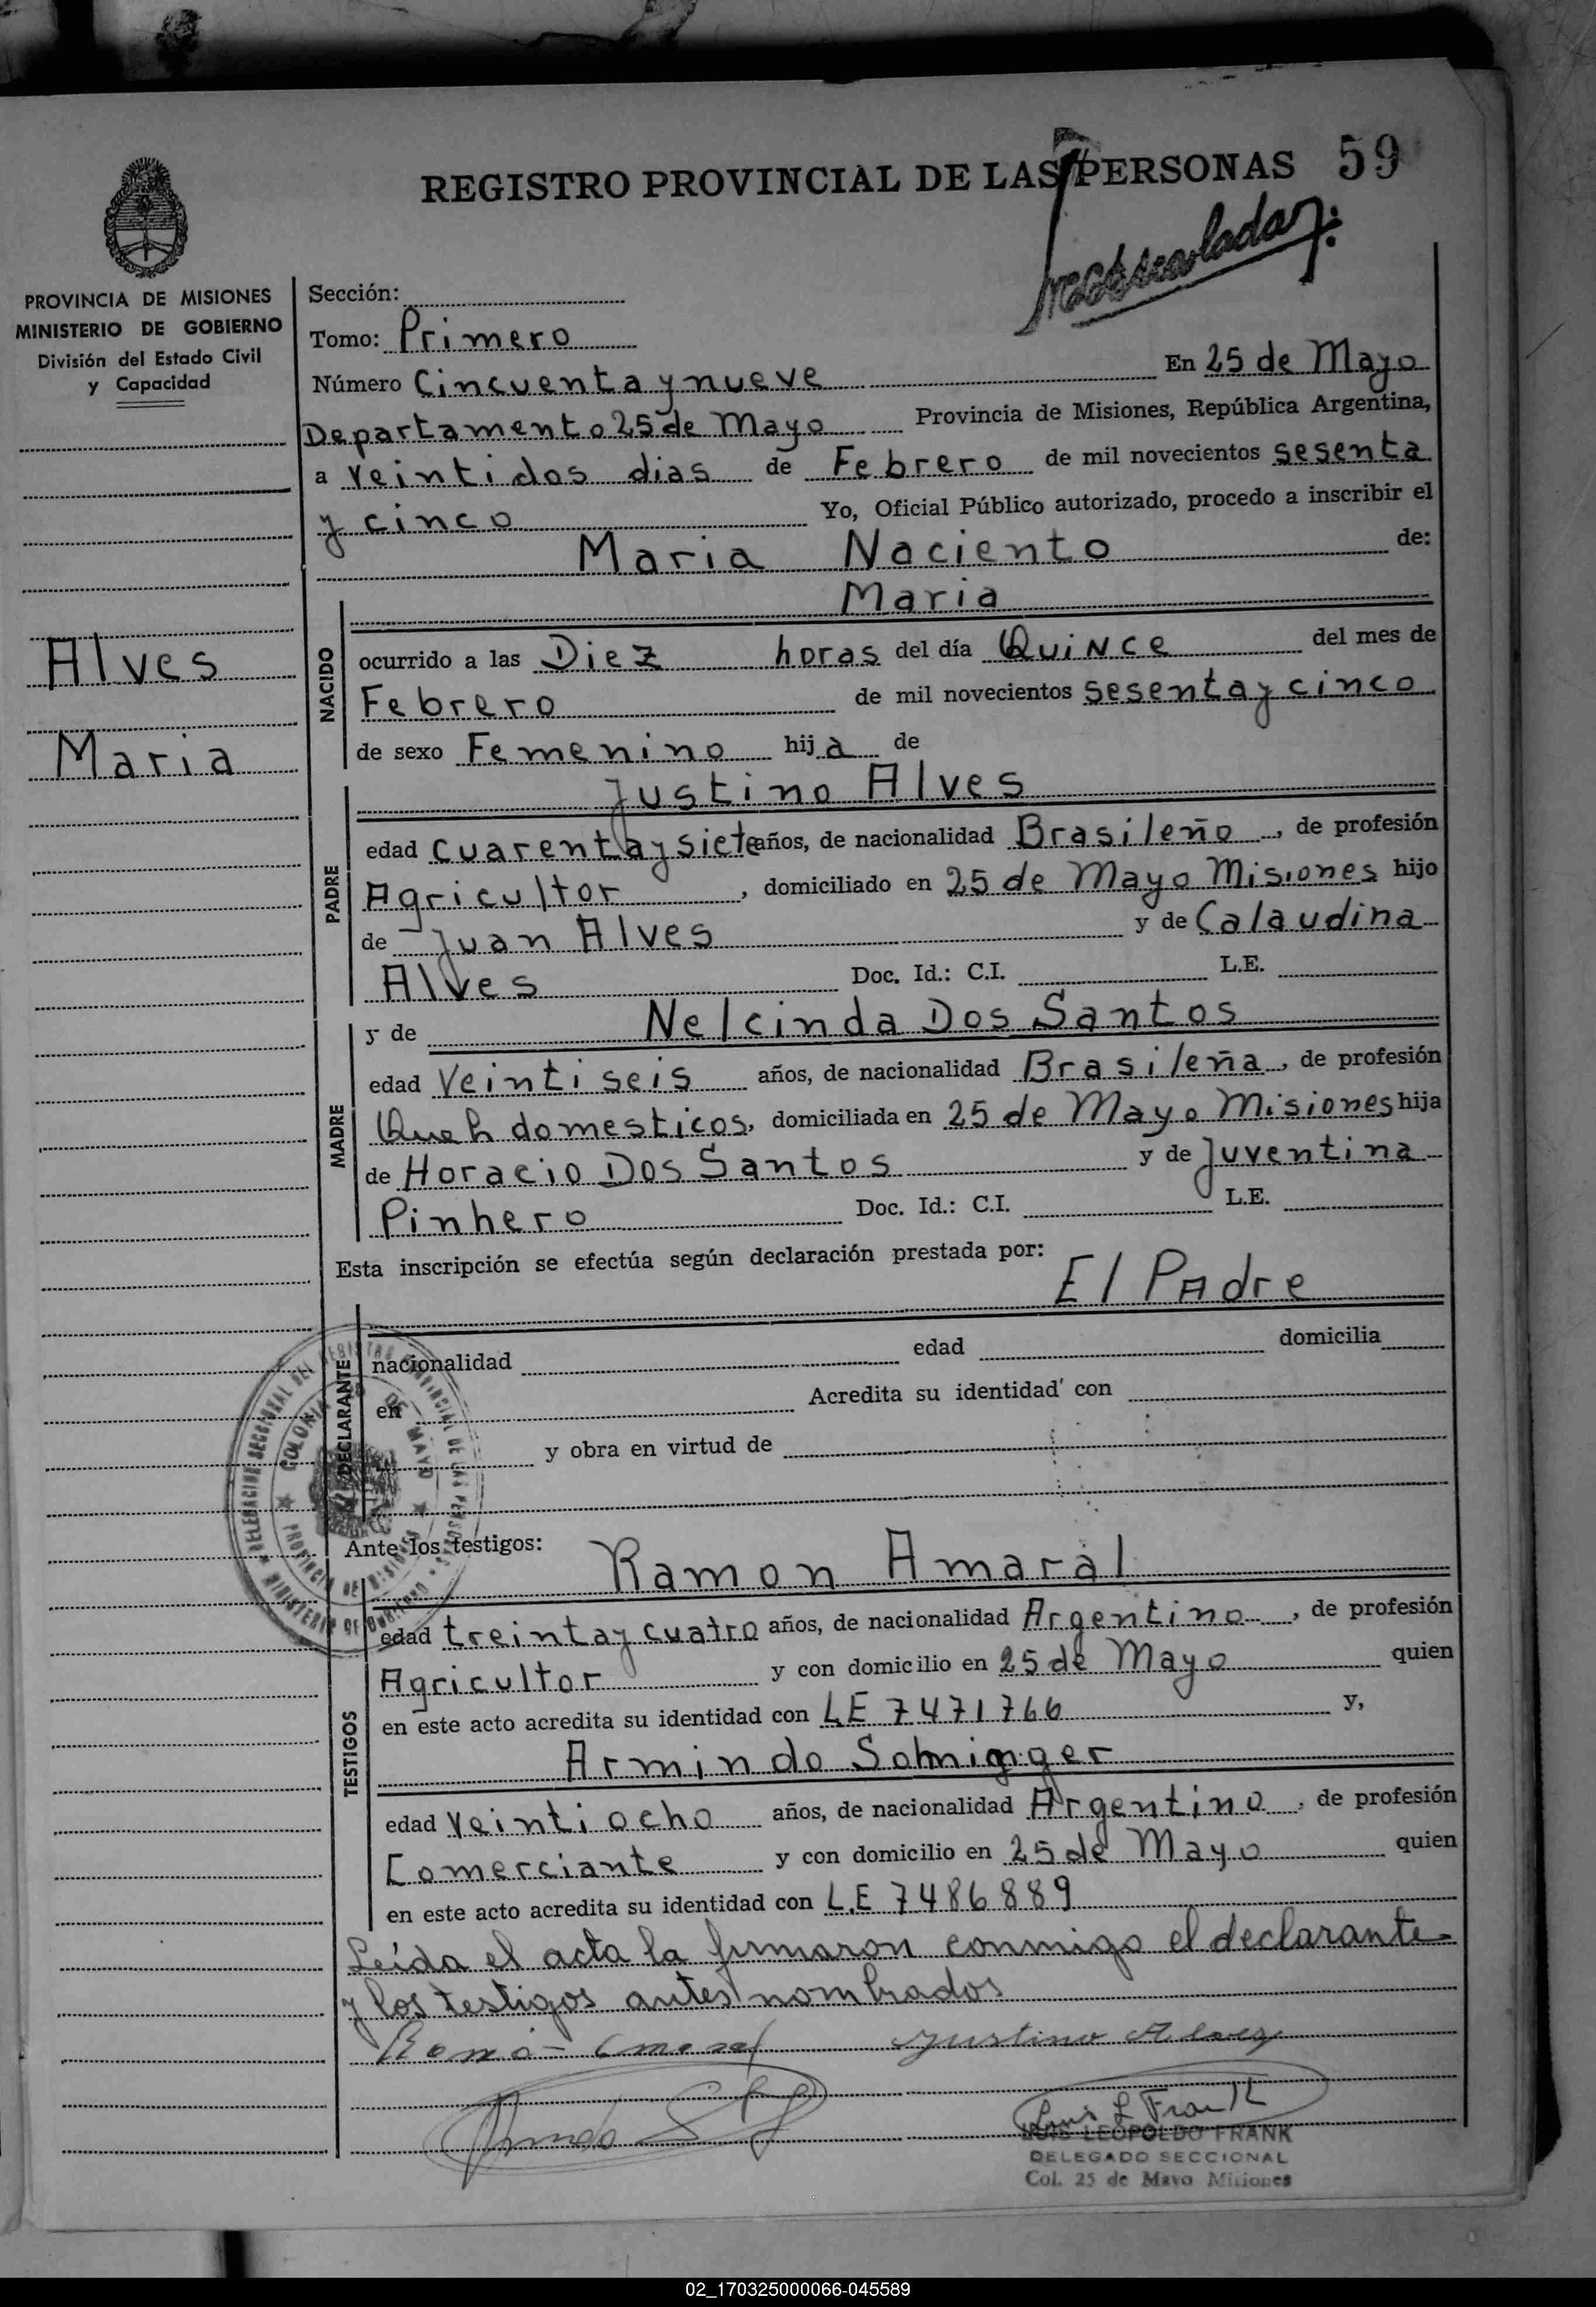 REGISTRO PROVINCIAL DE LAS PERSONAS 59
PROVINCIA DE MISIONES
MINISTERIO DE GOBIERNO
División del Estado Civil
y Capacidad
Alves
Maria
Sección:
Tomo: Primero
Número Cincuenta y nueve En 25 de Mayo
Departamento 25 de Mayo Provincia de Misiones, República Argentina,
a veintidos dias de Febrero de mil novecientos sesenta
y cinco Yo, Oficial Público autorizado, procedo a inscribir el
Maria Naciento de:
Maria
NACIDO
ocurrido a las Diez horas del día Quince del mes de
Febrero de mil novecientos sesenta y cinco
de sexo Femenino hija de
Justino Alves
PADRE
edad cuarenta y siete años, de nacionalidad Brasileño, de profesión
Agricultor, domiciliado en 25 de Mayo Misiones hijo
de Juan Alves y de Calaudina
Alves Doc. Id.: C.I. L.E.
y de Nelcinda Dos Santos
MADRE
edad Veintiseis años, de nacionalidad Brasileña, de profesión
Queh domesticos, domiciliada en 25 de Mayo Misiones hija
de Horacio Dos Santos y de Juventina
Pinhero Doc. Id.: C.I. L.E.
Esta inscripción se efectúa según declaración prestada por:
El Padre
DECLARANTE
nacionalidad edad domicilia
en Acredita su identidad con
y obra en virtud de
Ante los testigos:
Ramon Amaral
TESTIGOS
edad treinta y cuatro años, de nacionalidad Argentino, de profesión
Agricultor y con domicilio en 25 de Mayo quien
en este acto acredita su identidad con LE 7471766 y,
Armindo
edad Veintiocho años, de nacionalidad Argentino, de profesión
Comerciante y con domicilio en 25 de Mayo quien
en este acto acredita su identidad con L.E 7486889
Leída el acta la firmaron conmigo el declarante
y los testigos antes nombrados
Justino Alves
Luis L Frank
LUIS LEOPOLDO FRANK
DELEGADO SECCIONAL
Col. 25 de Mayo Misiones
02_170325000066-045589